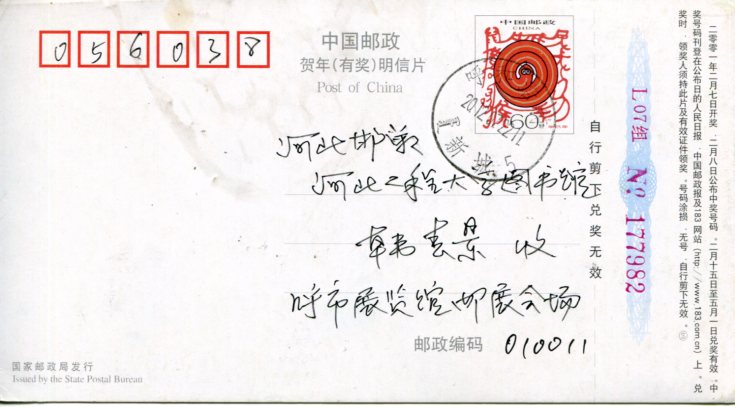 056038
中国邮政
贺年(有奖)明信片
Post of China
中国邮政
CHINA
60分
河北邯郸
河北工程大学图书馆
韩春景 收
呼市展览馆邮展会场
邮政编码 010011
国家邮政局发行
Issued by the State Postal Bureau
自行剪下兑奖无效
L07组 № 177982
二零零一年二月七日开奖,二月八日公布中奖号码。二月十五日至五月一日兑奖有效。中
奖号码刊登在公布日的人民日报、中国邮政报及183网站(http://www.183.com.cn)上。兑
奖时,领奖人须持此片及有效证件领奖。号码涂损、无号、自行剪下无效。